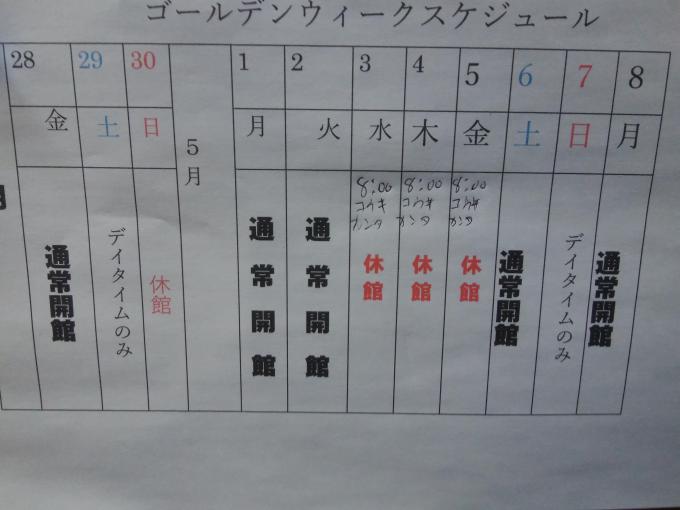 ゴールデンウィークスケジュール
28 29 30 5月 1 2 3 4 5 6 7 8
金 土 日 月 火 水 木 金 土 日 月
8:00 8:00 8:00
コウキ コウキ コウキ
カンタ カンタ カンタ
通常開館
デイタイムのみ
休館
通常開館
通常開館
休館
休館
休館
通常開館
デイタイムのみ
通常開館